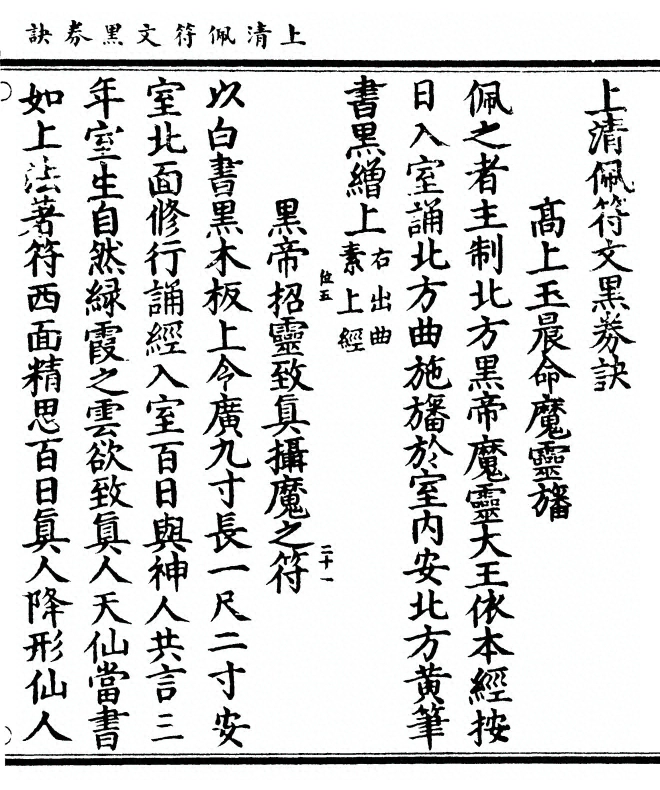 上清佩符文黑券訣
上清佩符文黑券訣
高上玉晨命魔靈旛
佩之者主制北方黑帝魔靈大王依本經按
日入室誦北方曲施旛於室內安北方黃筆
書黑繒上
右出曲
素上經
位五
二十一
黑帝招靈致眞攝魔之符
以白書黑木板上令廣九寸長一尺二寸安
室北面修行誦經入室百日與神人共言三
年室生自然緑霞之雲欲致眞人天仙當書
如上法著符西面精思百日眞人降形仙人